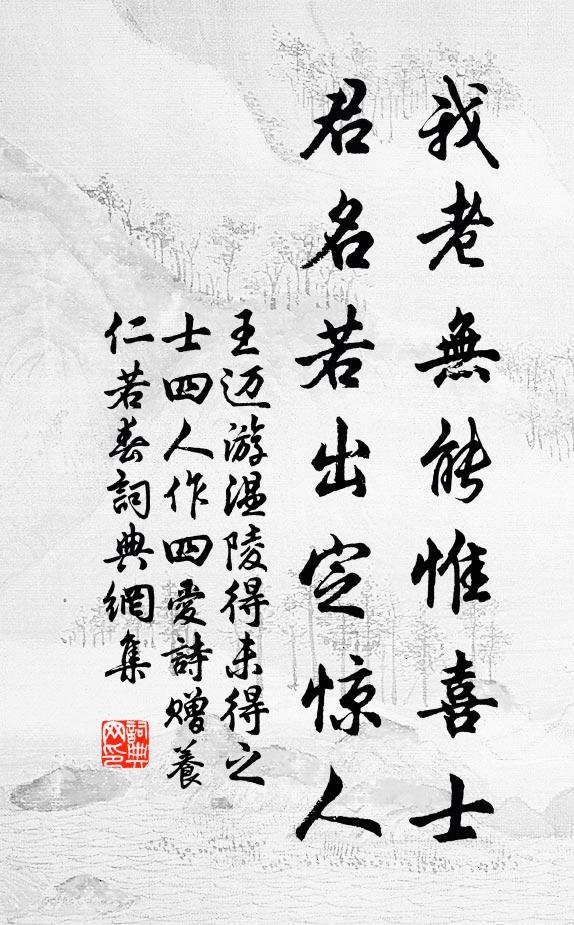 我老無能惟喜士
君名若出定惊人
王迈游温陵得未得之
士四人作四爱詩赠養
仁若春詞典網集
詞典网印